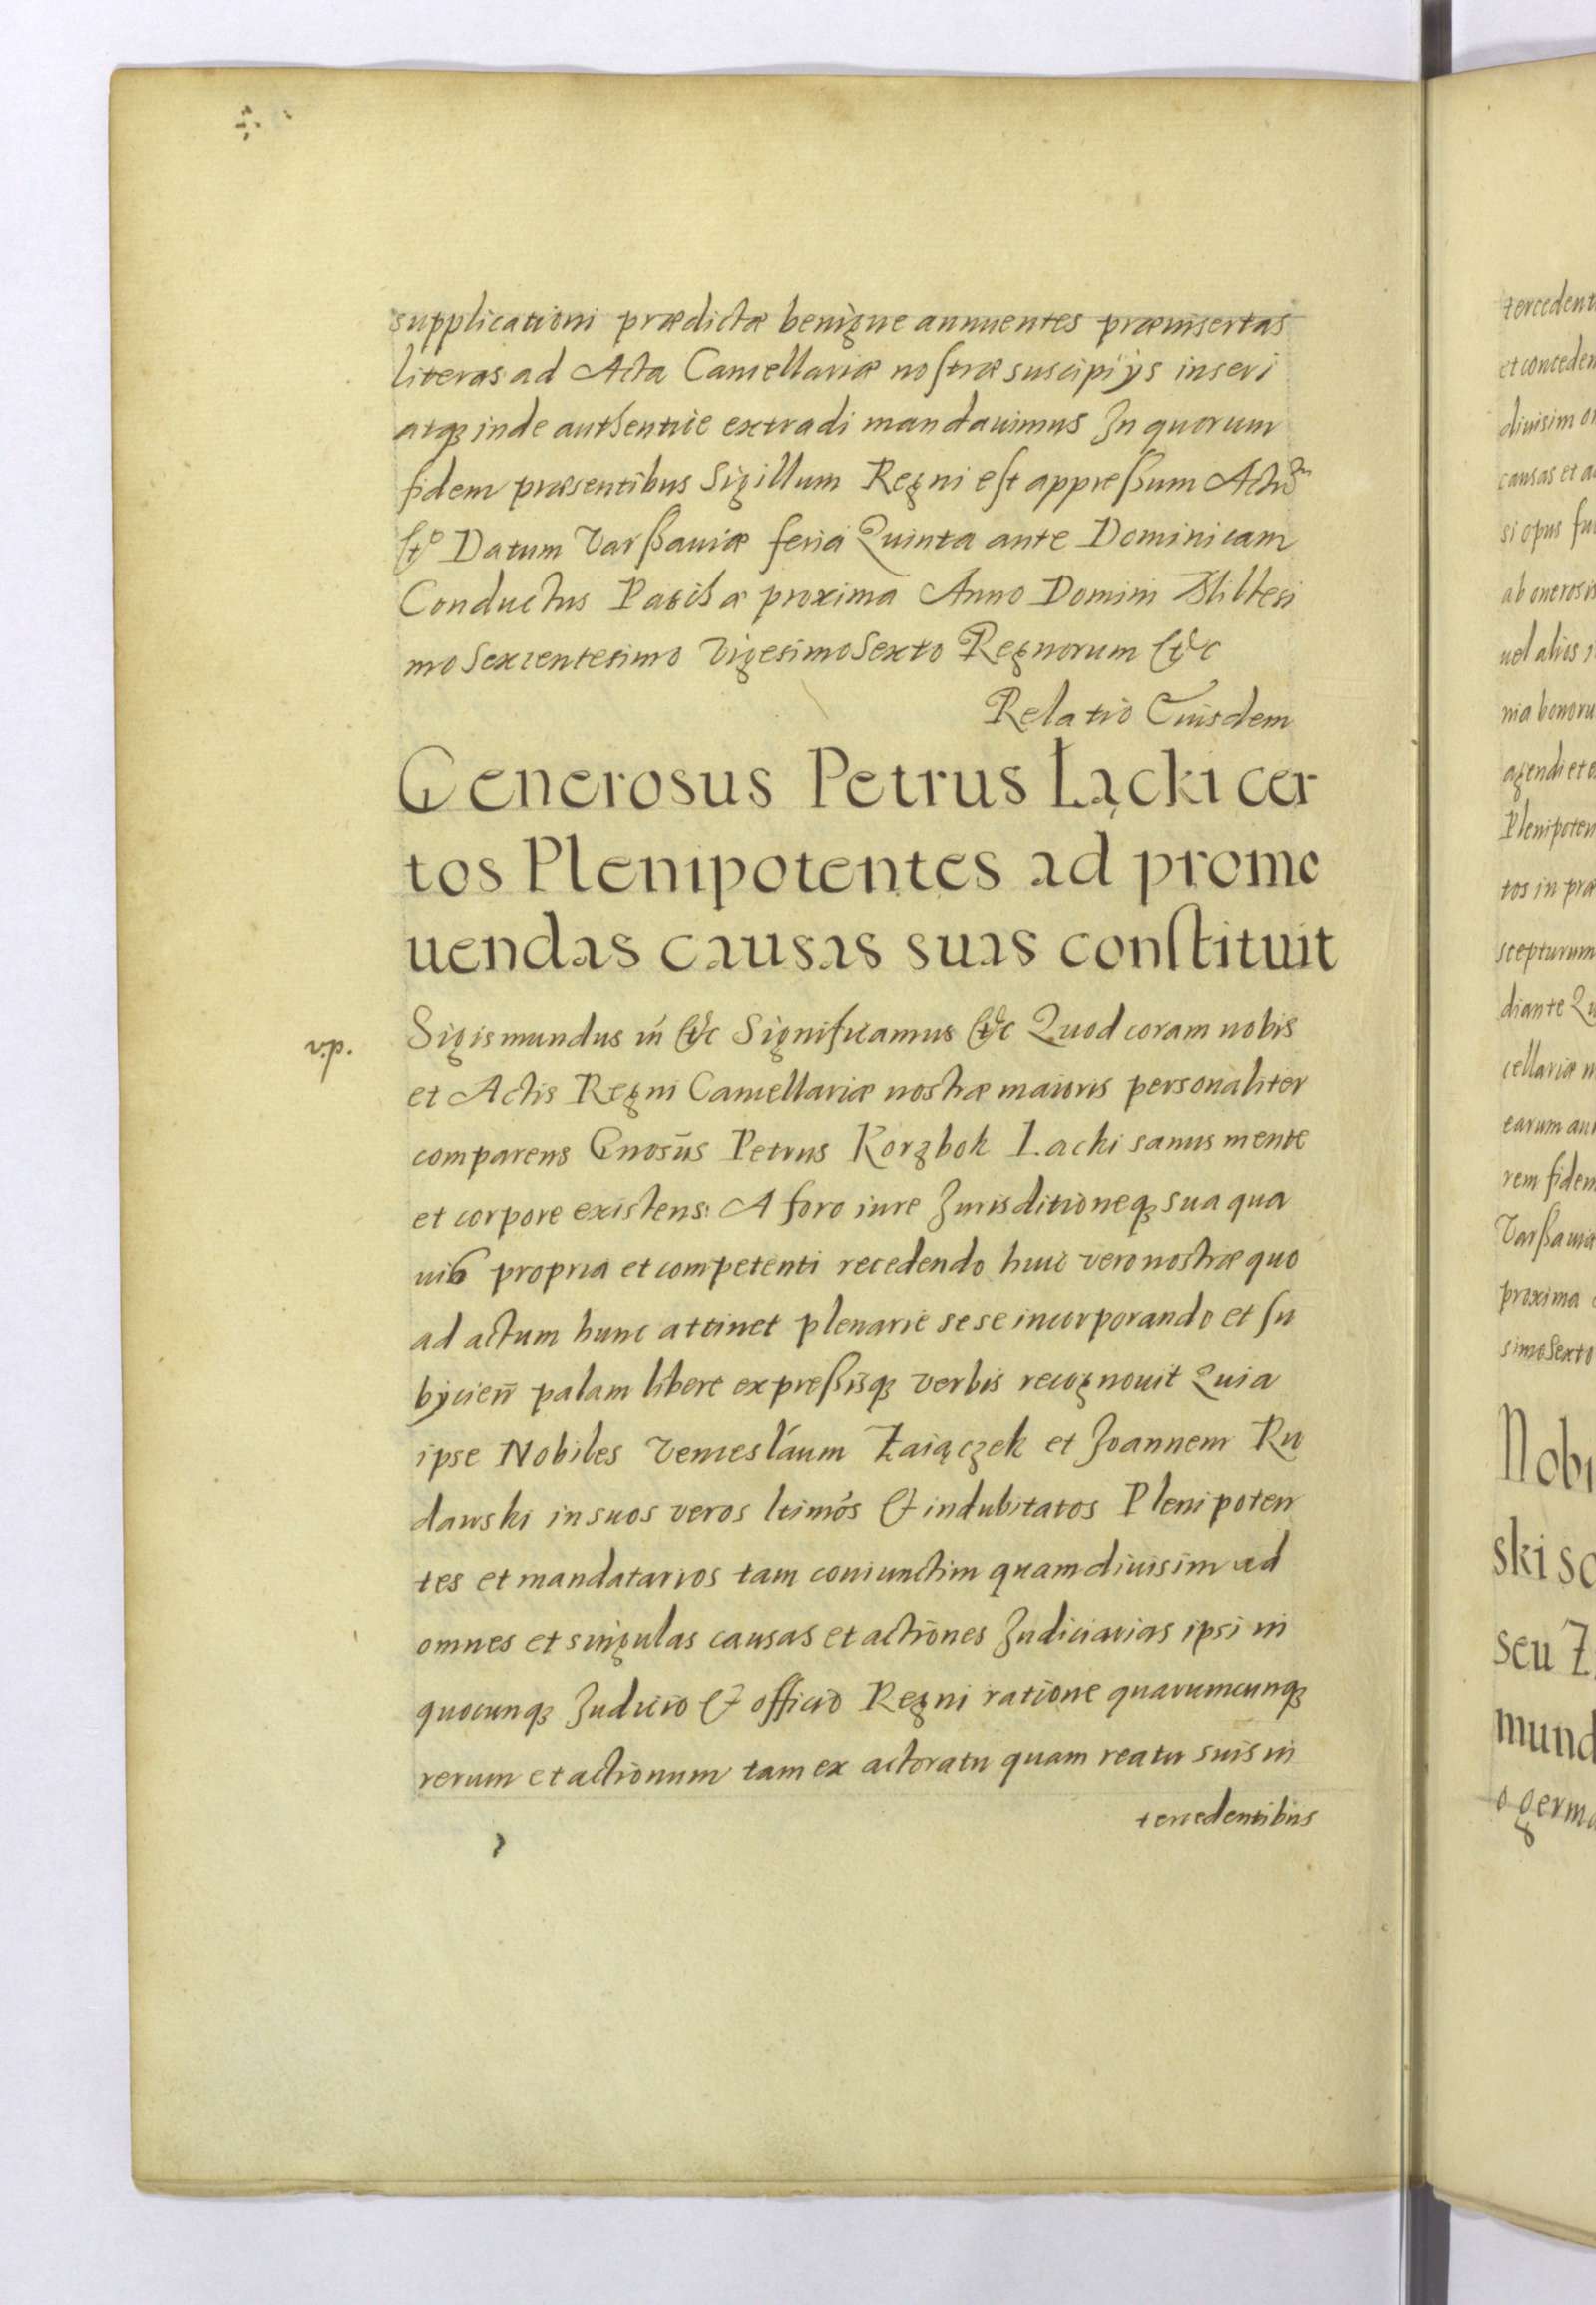 supplicationi prædictæ benigne annuentes præinsertas
literas ad Acta Cancellariæ nostræ suscipi ijs inseri
atqꝫ inde authentice extradi mandauimus In quorum
fidem præsentibus Sigillum Regni est appressum
Datum Varssauiæ feria Quinta ante Dominicam
Conductus Paschæ proxima Anno Domini Millesi
mo Sexcentesimo Vigesimo Sexto Regnorum &c
Relatio Eiusdem
Generosus Petrus Łącki cer
tos Plenipotentes ad promo
uendas causas suas constituit
v.p.
Sigismundus iii &c Significamus &c Quod coram nobis
et Actis Regni Cancellariæ nostræ maioris personaliter
comparens Gnosūs Petrus Korzbok Lacki sanus mente
et corpore existens: A foro iure Jurisditioneqꝫ sua qua
uis propria et competenti recedendo huic vero nostræ quo
ad actum hunc attinet plenarie sese incorporando et su
bijcieñ palam libere expressisqꝫ verbis recognouit Quia
ipse Nobiles Venceslaum Zaiączek et Joannem Ru
dawski in suos veros ltimos & indubitatos Plenipoten
tes et mandatarios tam coniunctim quam diuisim ad
omnes et singulas causas et actiones Judiciarias ipsi in
quocunqꝫ Judicio & officio Regni ratione quarumcunqꝫ
rerum et actionum tam ex actoratu quam reatu suis in
tercedentibus
tercedent
et conceden
diuisim o
causas et a
si opus fu
ab onerosis
uel alios i
nia bonoru
agendi et e
Plenipoten
tos in præ
scepturum
diante Qu
cellariæ n
earum au
rem fidem
Varssauiæ
proxima
simo Sexto
Nobi
ski sc
seu Z
mund
o germa